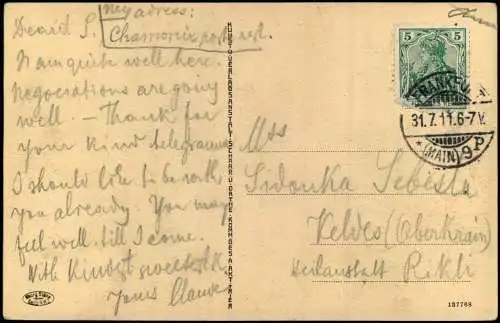 my adress:
Chamonix post rest.
Dearid S.
I am quite well here.
Negociations are going
well. — Thank for
your kind telegramme
I should like to be with
you already. You may
feel well till I come.
With Kindest
Yours
KUNSTVERLAGSANSTALT SCHAAR U. DATHE. KOMM. GES. A. AKT. TRIER
5 5
FRANKFURT
31.7.11.6-7V.
* (MAIN) 9 P
Mss
Sidonka Sebesta
Veldes (Oberkrain)
Heilanstalt Rikli
137768